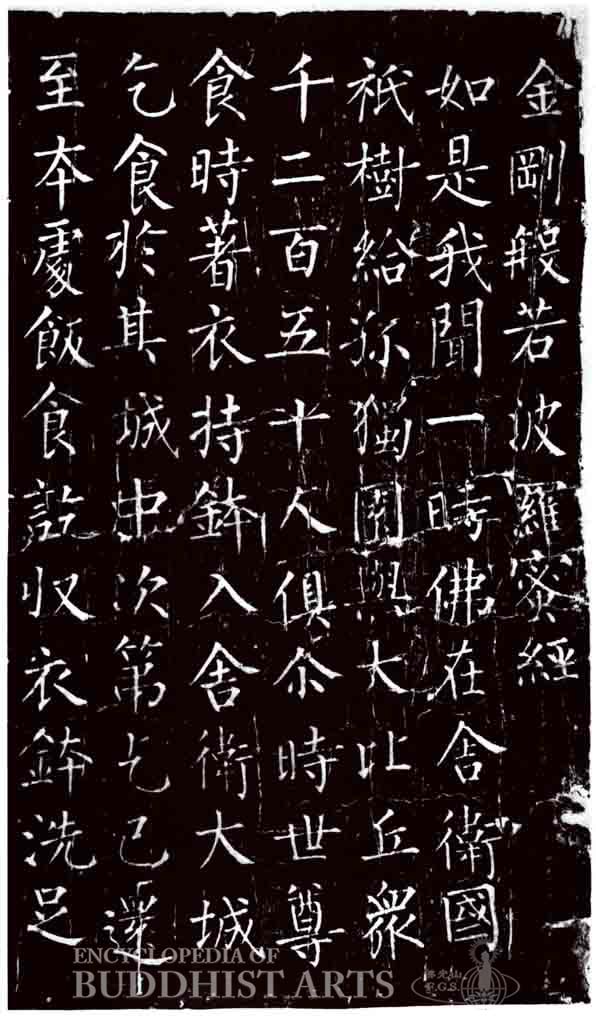 金剛般若波羅蜜經
如是我聞一時佛在舍衛國
祇樹給孤獨園與大比丘衆
千二百五十人俱尒時世尊
食時著衣持鉢入舍衛大城
乞食於其城中次第乞已還
至本處飯食訖収衣鉢洗足
ENCYCLOPEDIA OF
BUDDHIST ARTS
佛光山
F.G.S.